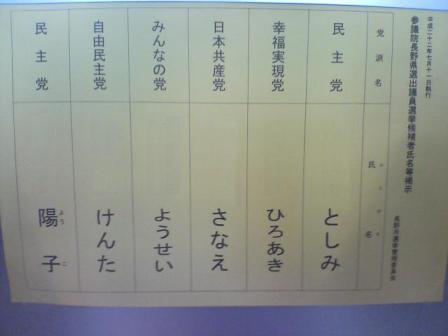 平成二十二年七月十一日執行
参議院長野県選出議員選挙候補者氏名等掲示
長野県選挙管理委員会
党派名 氏名
民主党 としみ
幸福実現党 ひろあき
日本共産党 さなえ
みんなの党 ようせい
自由民主党 けんた
民主党 陽子
よう こ